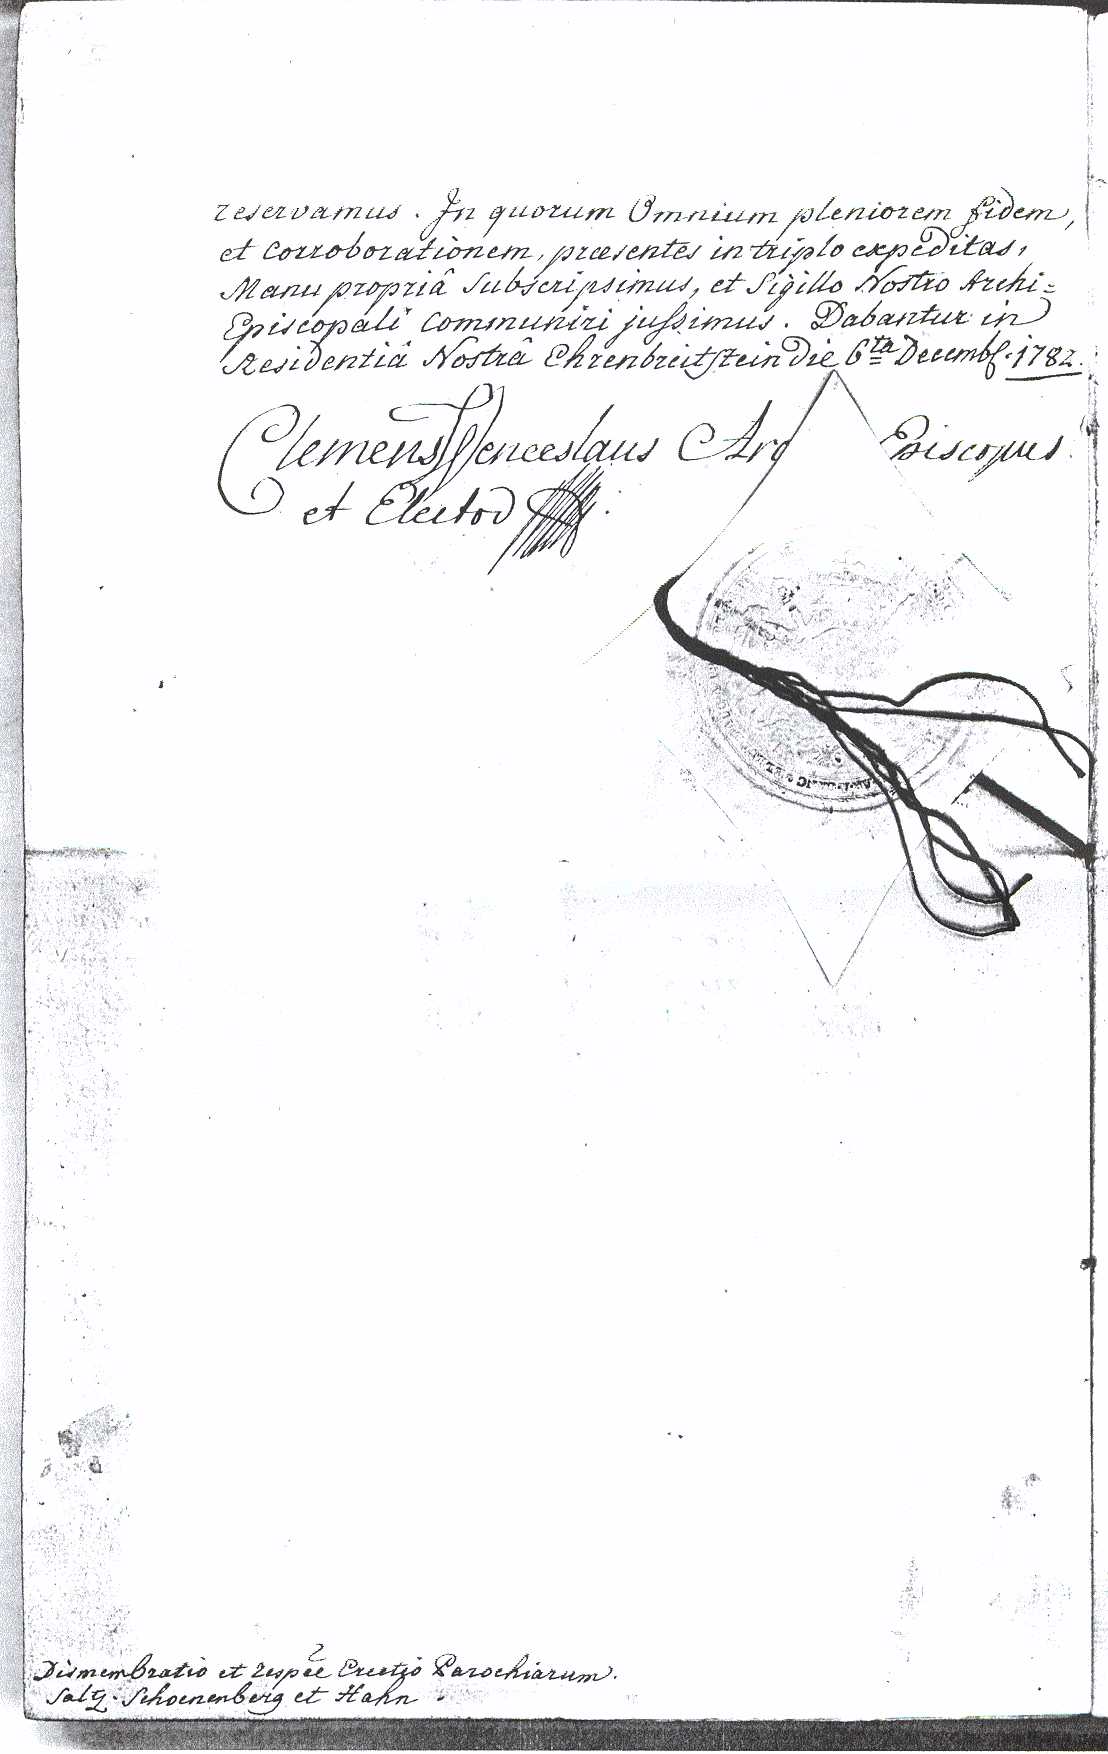 reservamus. In quorum Omnium pleniorem fidem,
et corroborationem, præsentes in triplo expeditas,
Manu propriâ Subscripsimus, et Sigillo Nostro Archi=
Episcopali communiri jussimus. Dabantur in
Residentiâ Nostrâ Ehrenbreitstein die 6ta Decembr. 1782.
Clemens Wenceslaus Arc Episcopus
et Elector
Dismembratio et respēe Erectio Parochiarum.
Saltz. Schoenenberg et Hahn